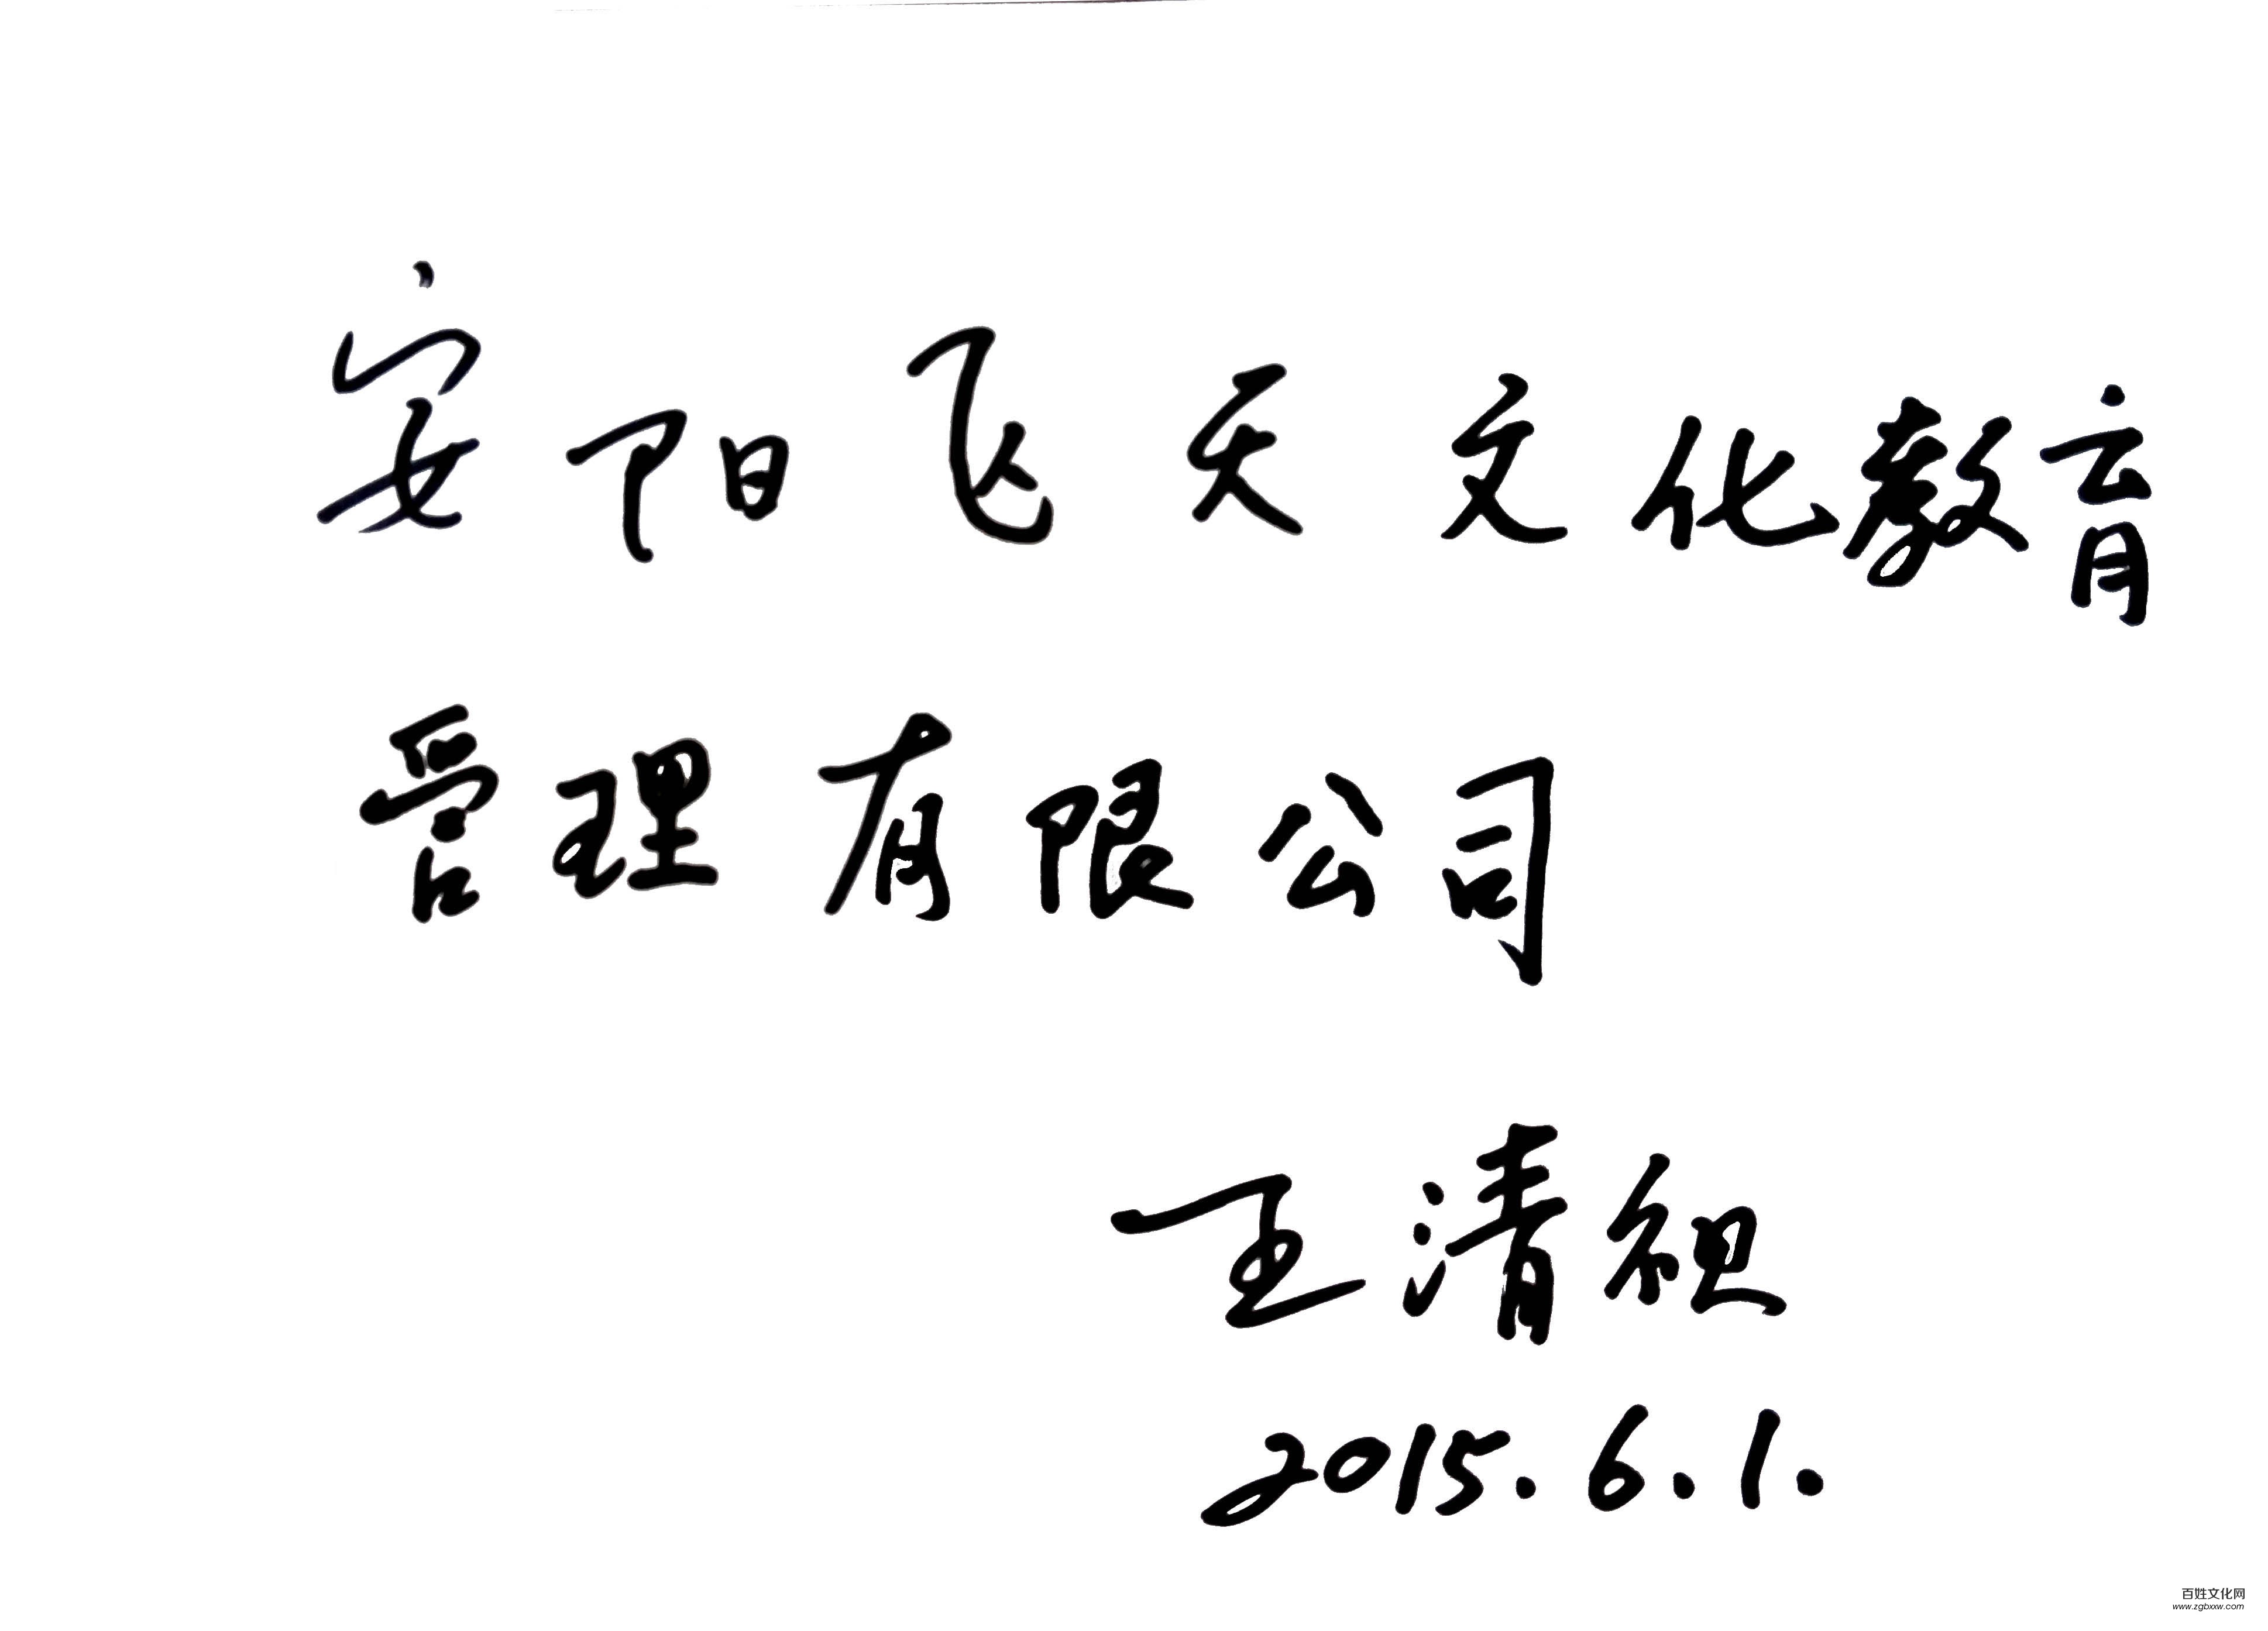 安阳飞天文化教育
管理有限公司
王清组
2015.6.1.
百姓文化网
www.zgbxxw.com